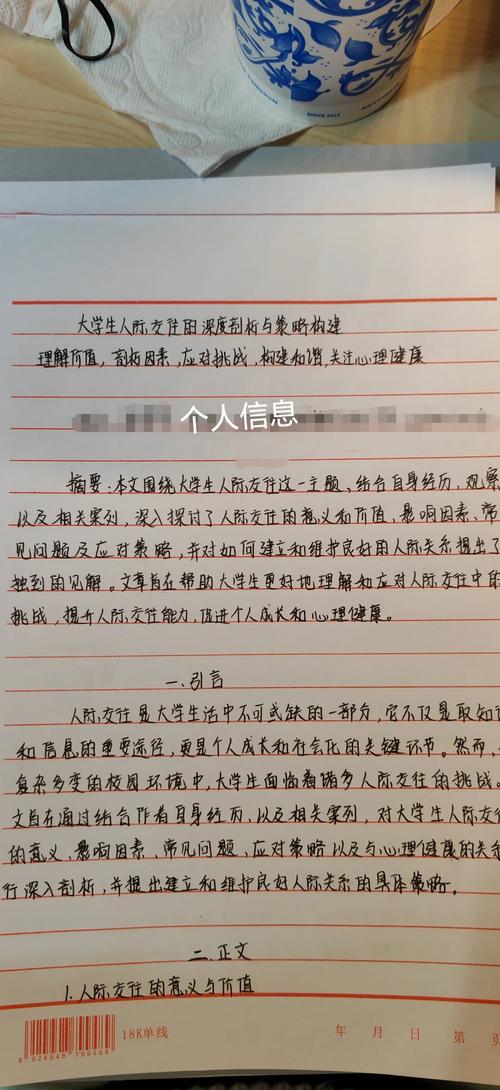 SINCE 2012
大学生人际交往的深度剖析与策略构建
理解价值,剖析因素,应对挑战,构建和谐,关注心理健康
个人信息
摘要:本文围绕大学生人际交往这一主题、结合自身经历、观察
以及相关案例,深入探讨了人际交往的意义和价值、影响因素、常
见问题及应对策略,并对如何建立和维护良好的人际关系提出了
独到的见解。文章旨在帮助大学生更好地理解和应对人际交往中的
挑战,提升人际交往能力,促进个人成长和心理健康。
一.引言
人际交往是大学生活中不可或缺的一部分,它不仅是获取知识
和信息的重要途径,更是个人成长和社会化的关键环节。然而,
复杂多变的校园环境中,大学生面临着诸多人际交往的挑战。
文旨在通过结合作者自身经历、以及相关案例,对大学生人际交
的意义、影响因素、常见问题、应对策略以及与心理健康的关系
行深入剖析,并提出建立和维护良好人际关系的具体策略。
二.正文
1.人际交往的意义与价值
18K单线 年 月 日 第 页
6 924948 799489